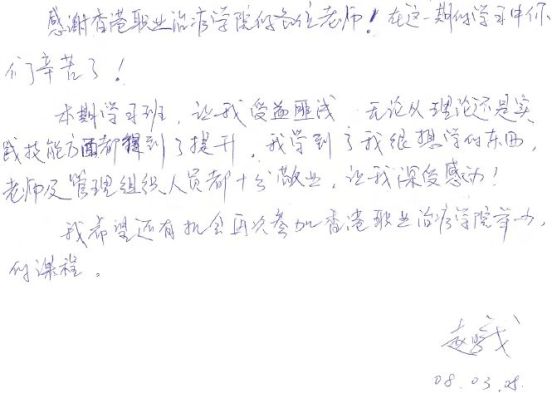 感谢香港职业治疗学院的各位老师！在这一期的学习中你
们辛苦了！
本期学习班，让我受益匪浅，无论从理论还是实
践技能方面都得到了提升，我学到了我很想学的东西，
老师及管理组织人员都十分敬业，让我深受感动！
我希望还有机会再次参加香港职业治疗学院举办
的课程。
赵
08.03.08.